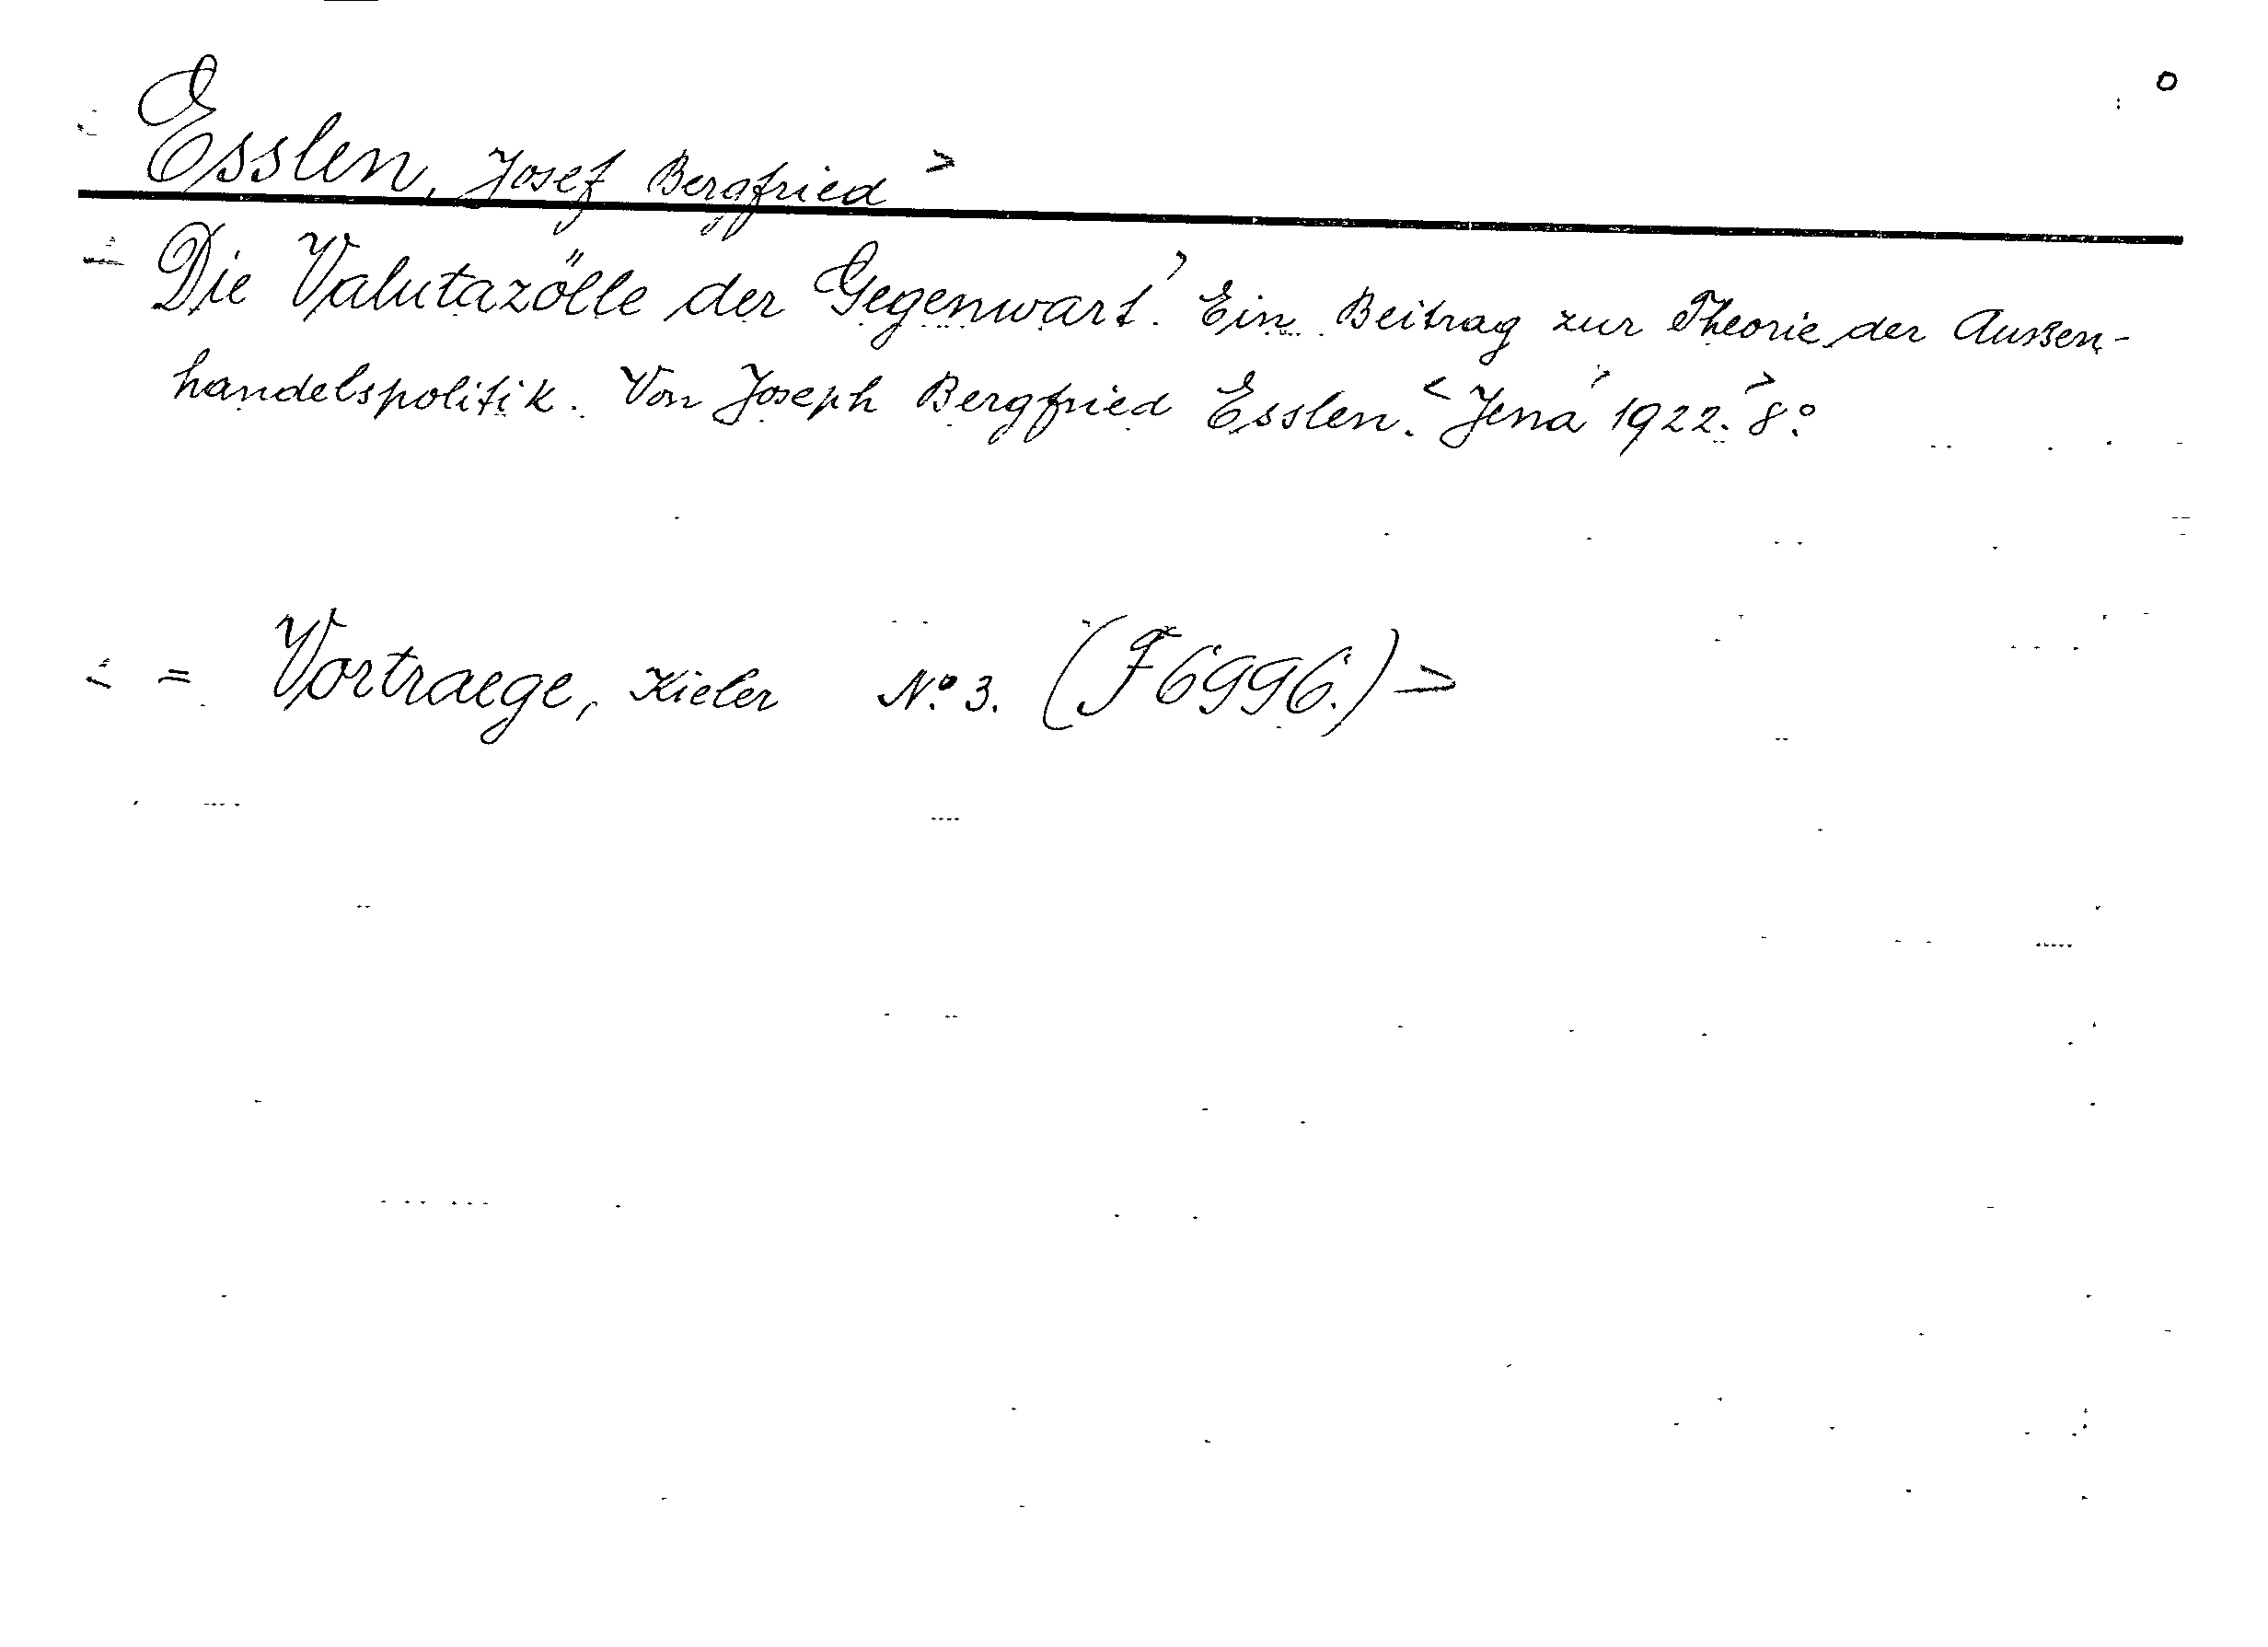 Esslen, Josef Bergfried >
Die Valutazölle der Gegenwart.> Ein Beitrag zur Theorie der Außen-
handelspolitik. Von Joseph Bergfried Esslen. < Jena> 1922.> 8°
< = Vortraege, Kieler No. 3. (F6996.) >